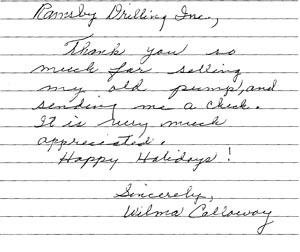 Ramsby Drilling Inc.,
Thank you so
much for selling
my old pump, and
sending me a check.
It is very much
appreciated.
Happy Holidays!
Sincerely,
Wilma Calloway